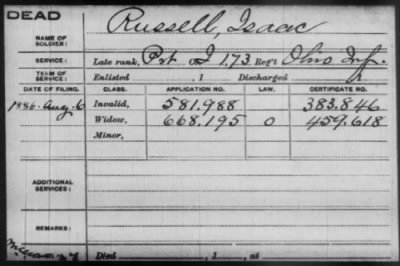 DEAD
NAME OF SOLDIER: Russell, Isaac
SERVICE: Late rank, Pvt. I 173 Reg't Ohio Inf.
TERM OF SERVICE: Enlisted , 1 Discharged , 1
DATE OF FILING. CLASS. APPLICATION NO. LAW. CERTIFICATE NO.
1886. Aug. 6 Invalid, 581.988 383.846
Widow, 668.195 0 459.618
Minor,
ADDITIONAL SERVICES:
REMARKS:
Died , 1 , at